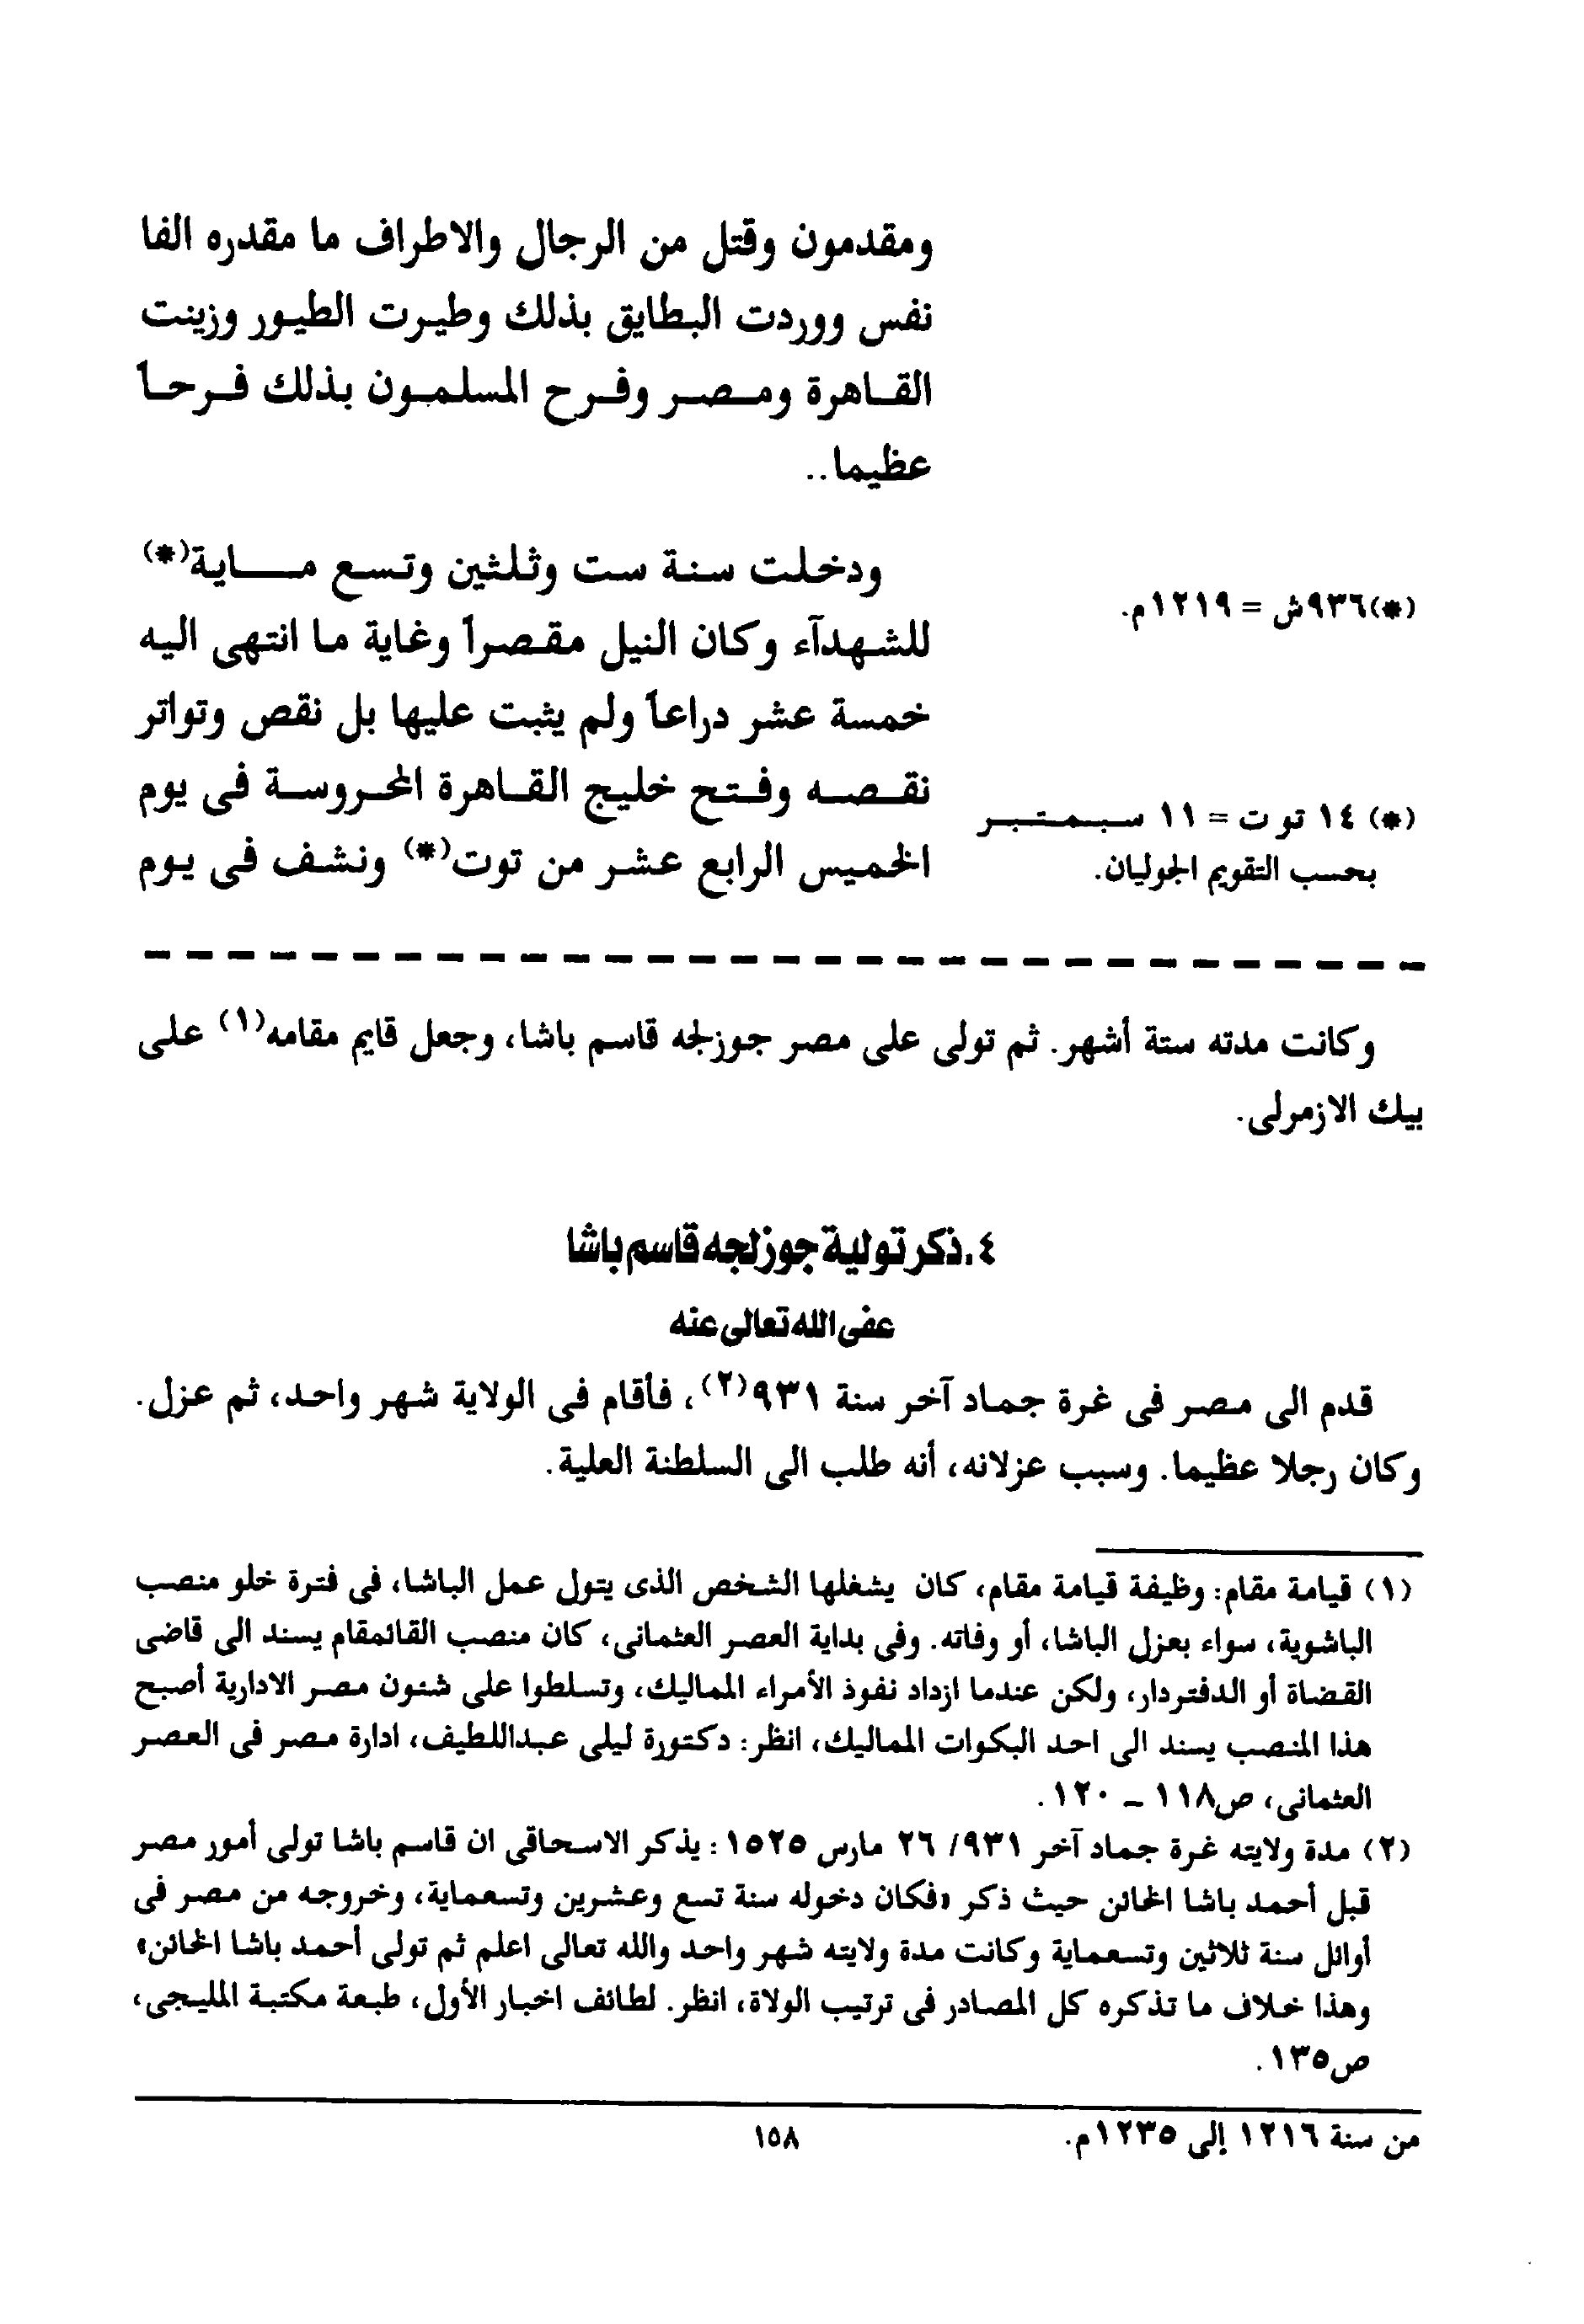 ومقدمون وقتل من الرجال والاطراف ما مقدره الفا
نفس ووردت البطايق بذلك وطيرت الطيور وزينت
القاهرة ومصر وفرح المسلمون بذلك فرحاً
عظيما..
ودخلت سنة ست وثلثين وتسع ماية(*)
(*)٩٣٦ش = ١٢١٩م.
للشهدآء وكان النيل مقصراً وغاية ما انتهى اليه
خمسة عشر دراعاً ولم يثبت عليها بل نقص وتواتر
نقصه وفتح خليج القاهرة المحروسة فى يوم
(*) ١٤ توت = ١١ سبمتبر
الخميس الرابع عشر من توت(*) ونشف فى يوم
بحسب التقويم الجوليان.
وكانت مدته ستة أشهر. ثم تولى على مصر جوزلجه قاسم باشا، وجعل قايم مقامه(١) على
بيك الازمرلى.
٤. ذكر تولية جوزلجه قاسم باشا
عفى الله تعالى عنه
قدم الى مصر فى غرة جماد آخر سنة ٩٣١(٢)، فأقام فى الولاية شهر واحد، ثم عزل.
وكان رجلا عظيما. وسبب عزلانه، أنه طلب الى السلطنة العلية.
(١) قيامة مقام: وظيفة قيامة مقام، كان يشغلها الشخص الذى يتول عمل الباشا، فى فترة خلو منصب
الباشوية، سواء بعزل الباشا، أو وفاته. وفى بداية العصر العثمانى، كان منصب القائمقام يسند الى قاضى
القضاة أو الدفتردار، ولكن عندما ازداد نفوذ الأمراء المماليك، وتسلطوا على شئون مصر الادارية أصبح
هذا المنصب يسند الى احد البكوات المماليك، انظر: دكتورة ليلى عبداللطيف، ادارة مصر فى العصر
العثمانى، ص١١٨ ـ ١٢٠.
(٢) مدة ولايته غرة جماد آخر ٩٣١/ ٢٦ مارس ١٥٢٥: يذكر الاسحاقى ان قاسم باشا تولى أمور مصر
قبل أحمد باشا الخائن حيث ذكر «فكان دخوله سنة تسع وعشرين وتسعماية، وخروجه من مصر فى
أوائل سنة ثلاثين وتسعماية وكانت مدة ولايته شهر واحد والله تعالى اعلم ثم تولى أحمد باشا الخائن»
وهذا خلاف ما تذكره كل المصادر فى ترتيب الولاة، انظر. لطائف اخبار الأول، طبعة مكتبة المليجى،
ص١٣٥.
من سنة ١٢١٦ إلى ١٢٣٥م.
١٥٨